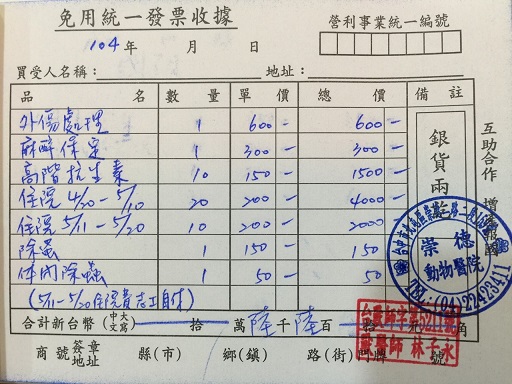 免用統一發票收據
營利事業統一編號
104年 月 日
買受人名稱： 地址：
品 名 數 量 單 價 總 價 備 註
外傷處理 1 600- 600-
麻醉保定 1 300- 300-
高階抗生素 10 150- 1500-
住院 4/20-5/10 20 200- 4000-
住院 5/11-5/20 10 200- 2000
除蚤 1 150 150
体內除蟲 1 50 50
(5/11-5/20住院
銀貨兩
互助合作
崇德
動物醫院
TEL:(04)22423411
合計新台幣(中文大寫) 拾 萬陸千陸百 角
林子永
商號簽章地址 縣(市) 鄉(鎮) 路(街) 號